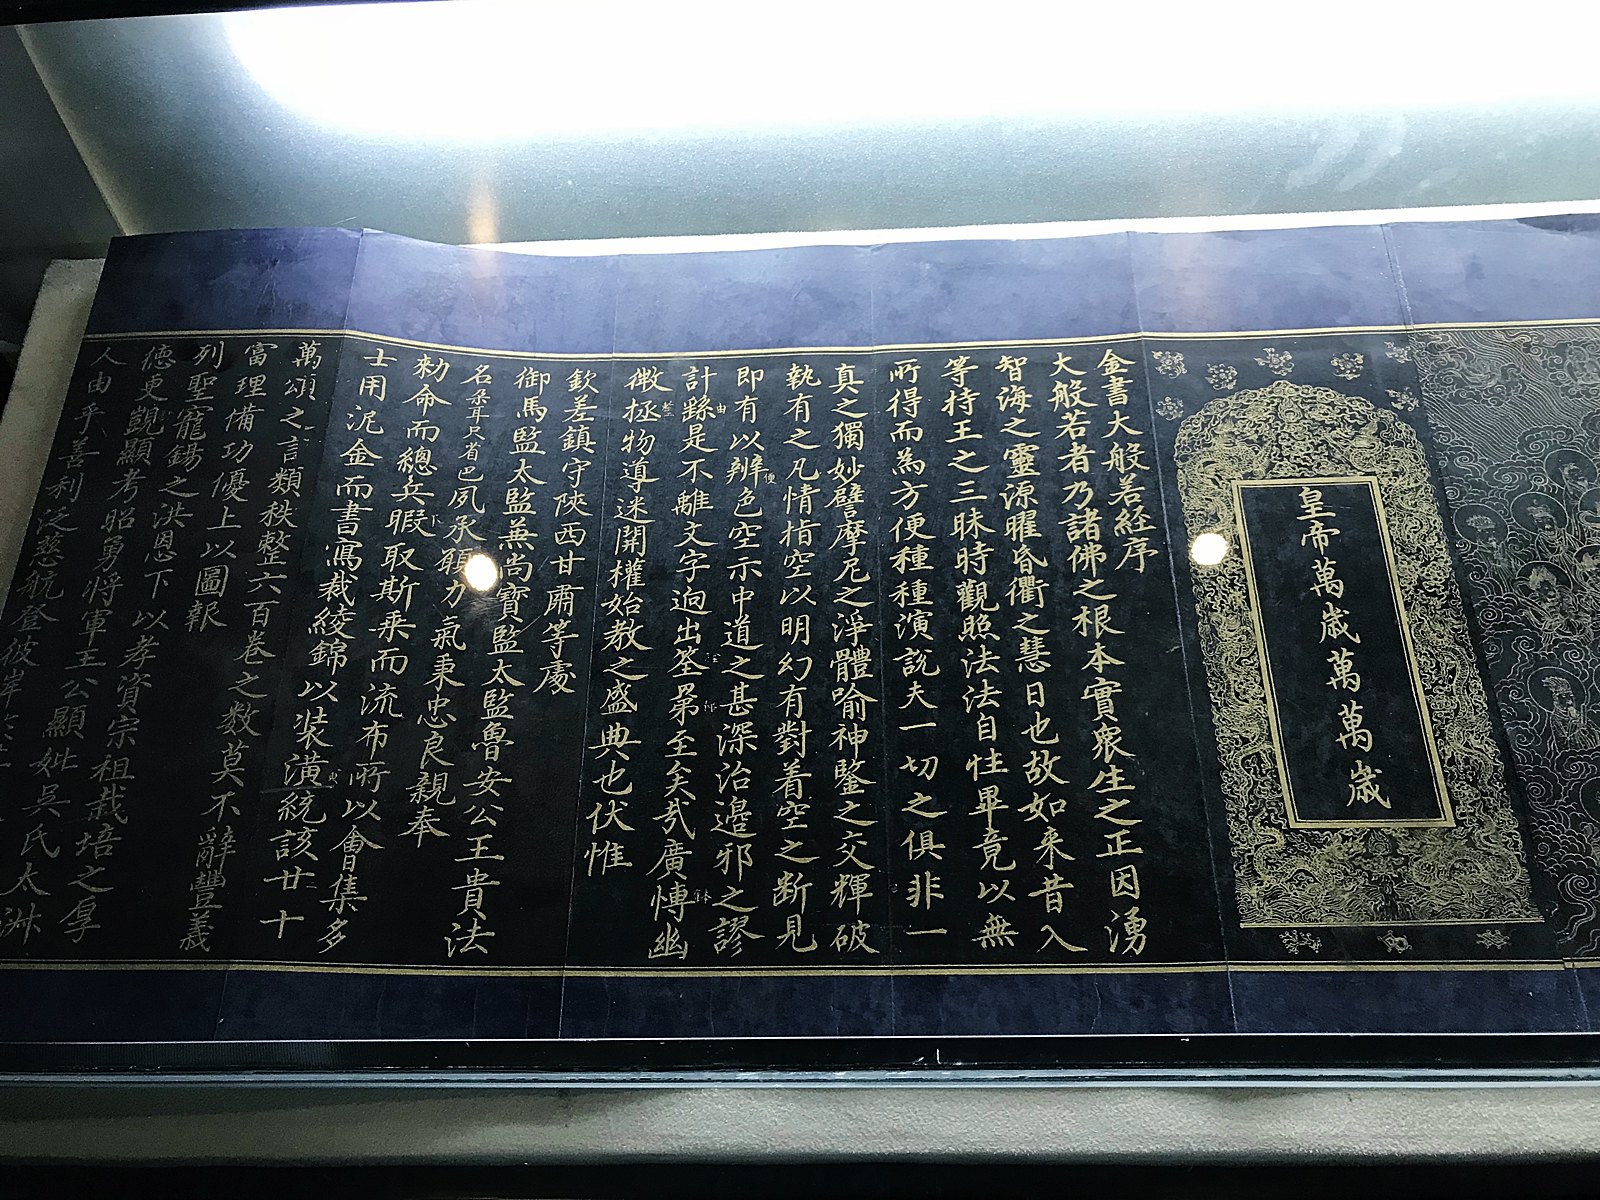 皇帝萬歲萬萬歲
金書大般若經序
大般若者乃諸佛之根本實衆生之正因湧
智海之靈源曜昏衢之慧日也故如来昔入
等持王之三昧時觀照法法自性畢竟以無
所得而為方便種種演說夫一切之俱非一
真之獨妙譬摩尼之淨體喻神鑒之交輝破
執有之凡情指空以明幻有對着空之断見
即有以辨色空示中道之甚深治邊邪之謬
計繇是不離文字逈出筌苐至矣㢤廣慱幽
微拯物導迷開權始教之盛典也伏惟
欽差鎮守陜西甘肅等處
御馬監太監無尚寶監太監魯安公王貴法
名桒耳尺省巴夙承願力氣秉忠良親奉
勑命而總兵暇取斯乗而流布所以會集多
士用泥金而書寫裁綾錦以装潢統該廿十
萬頌之言類秩整六百巻之数莫不辭豐義
富理備功優上以圖報
列聖寵錫之洪恩下以孝資宗祖栽培之厚
德更覬顯考昭勇将軍王公顯妣吳氏太淋
人由乎善利泛慈航登彼岸